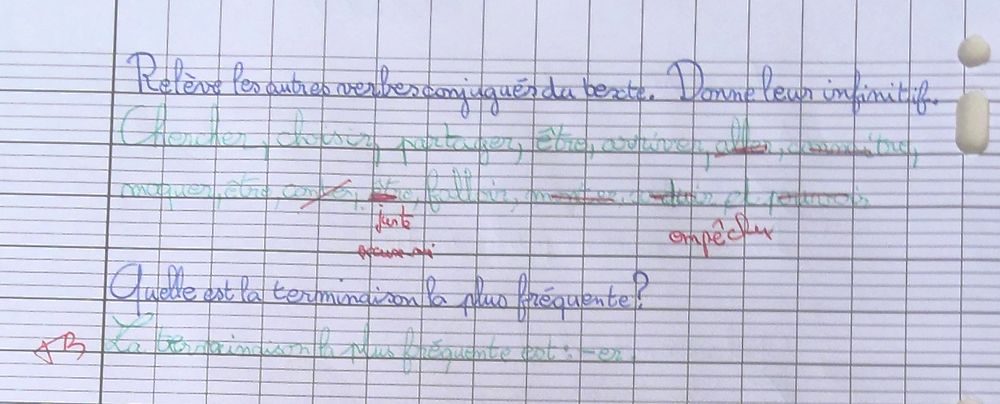 Relève les autres verbes conjugués du texte. Donne leur infinitif.
Chercher, choisir, partager, être, arriver, aller, connaître,
moquer, être, conter, être, falloir, et pouvoir
juste
empêcher
Quelle est la terminaison la plus fréquente?
TB La terminaison la plus fréquente est : -er.